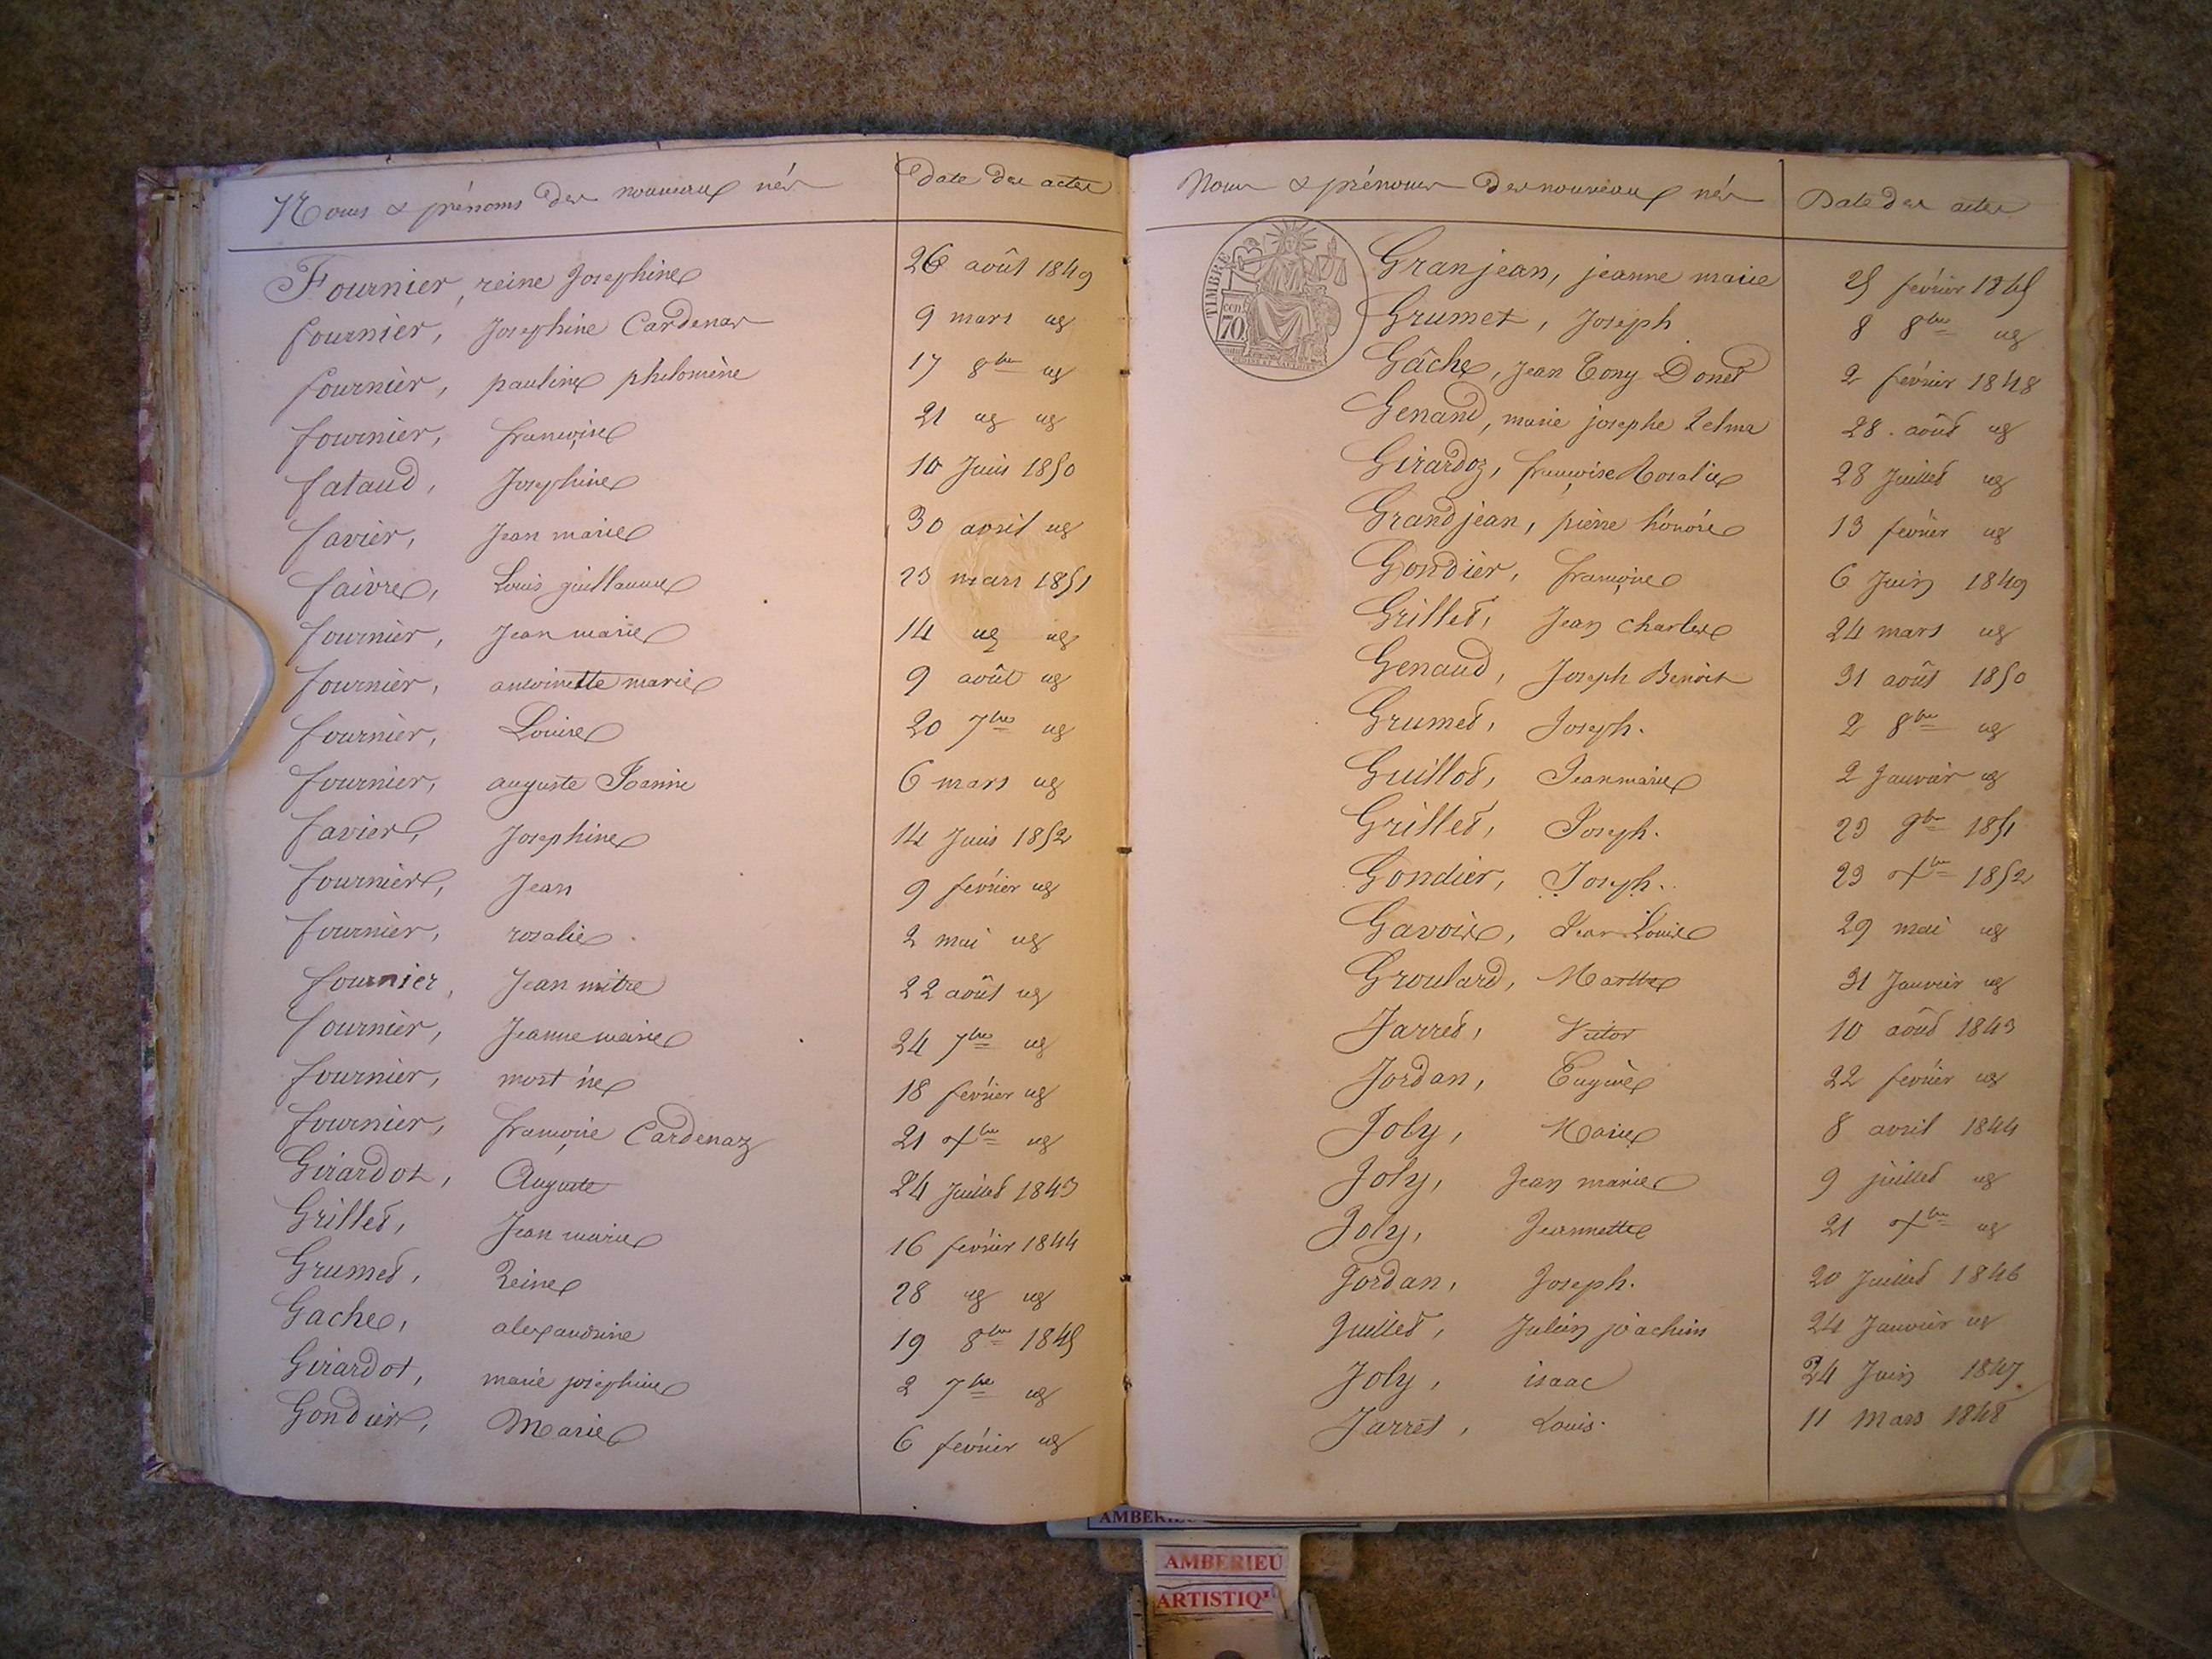 Noms & prénoms des nouveaux nés Date des actes
Fournier, reine Josephine 26 août 1849
fournier, Josephine Cardenas 9 mars ug
fournier, pauline philomène 17 8bre ug
fournier, françoise 21 ug ug
fataud, Josephine 10 Juin 1850
favier, Jean marie 30 avril ug
faivre, Louis guillaume 23 mars 1851
fournier, Jean marie 14 ug ug
fournier, antoinette marie 9 août ug
fournier, Louise 20 7bre ug
fournier, auguste 6 mars ug
favier, Josephine 14 Juin 1852
fournier, Jean 9 février ug
fournier, rosalie 2 mai ug
fournier, Jean mitre 22 août ug
fournier, Jeanne marie 24 7bre ug
fournier, mort né 18 février ug
fournier, françoise Cardenaz 21 xbre ug
Girardot, Auguste 24 Juillet 1843
Grillet, Jean marie 16 février 1844
Grumet, Reine 28 ug ug
Gache, alexandrine 19 8bre 1845
Girardot, marie josephine 2 7bre ug
Gondier, Marie 6 février ug
Noms & prénoms des nouveaux nés Date des actes
TIMBRE
70
Granjean, jeanne marie 25 février 1845
Grumet, Joseph 8 8bre ug
Gâche, Jean Tony Donet 2 février 1848
Genand, marie josephe Zelma 28 août ug
Girardoz, françoise Rosalie 28 Juillet ug
Grandjean, pierre honoré 13 février ug
Gondier, françoise 6 Juin 1849
Grillet, Jean Charles 24 mars ug
Genaud, Joseph Benoit 31 août 1850
Grumet, Joseph. 2 8bre ug
Guillot, Jean marie 2 Janvier ug
Grillet, Joseph. 23 9bre 1851
Gondier, Joseph. 23 xbre 1852
Gavoix, Jean Louis 29 mai ug
Groulard, Marthe 31 Janvier ug
Jarret, Victor 10 août 1843
Jordan, Eugène 22 février ug
Joly, Marie 8 avril 1844
Joly, Jean marie 9 juillet ug
Joly, Jeannette 21 xbre ug
Jordan, Joseph. 20 Juillet 1846
Juillet, Julien joachim 24 Janvier ug
Joly, isaac 24 Juin 1847
Jarret, Louis. 11 Mars 1848
AMBERIEU
AMBERIEU
ARTISTIQ